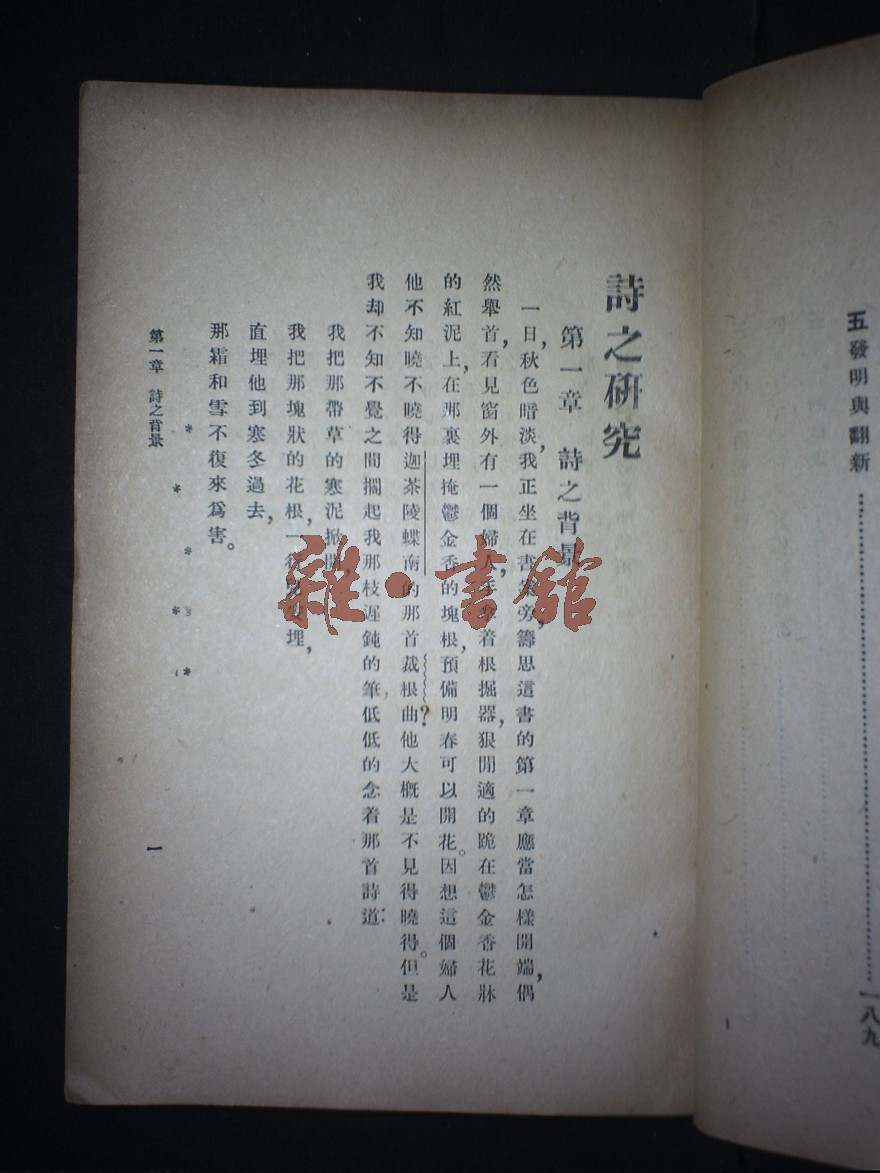 五 發明與翻新……………………一八九
詩之研究
第一章 詩之背景
一日,秋色暗淡,我正坐在書案旁,籌思這書的第一章應當怎樣開端,偶
然舉首,看見窗外有一個婦人,手拿着根掘器,狠閒適的跪在鬱金香花牀
的紅泥上,在那裏埋掩鬱金香的塊根,預備明春可以開花。因想這個婦人
他不知曉不曉得迦茶陵蝶南的那首裁根曲?他大概是不見得曉得。但是
我却不知不覺之間擱起我那枝遲鈍的筆,低低的念着那首詩道:
我把那帶草的寒泥掀開,
我把那塊狀的花根,一
埋,
直埋他到寒冬過去,
那霜和雪不復來爲害。
* * * * *
第一章 詩之背景
一
雜·書館